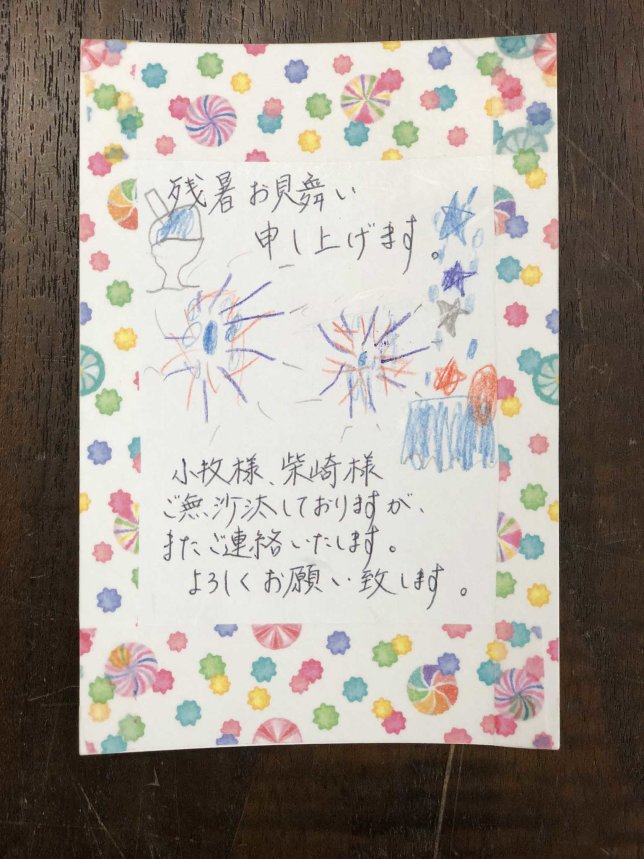 残暑お見舞い
申し上げます。
小牧様、柴崎様
ご無沙汰しておりますが、
またご連絡いたします。
よろしくお願い致します。